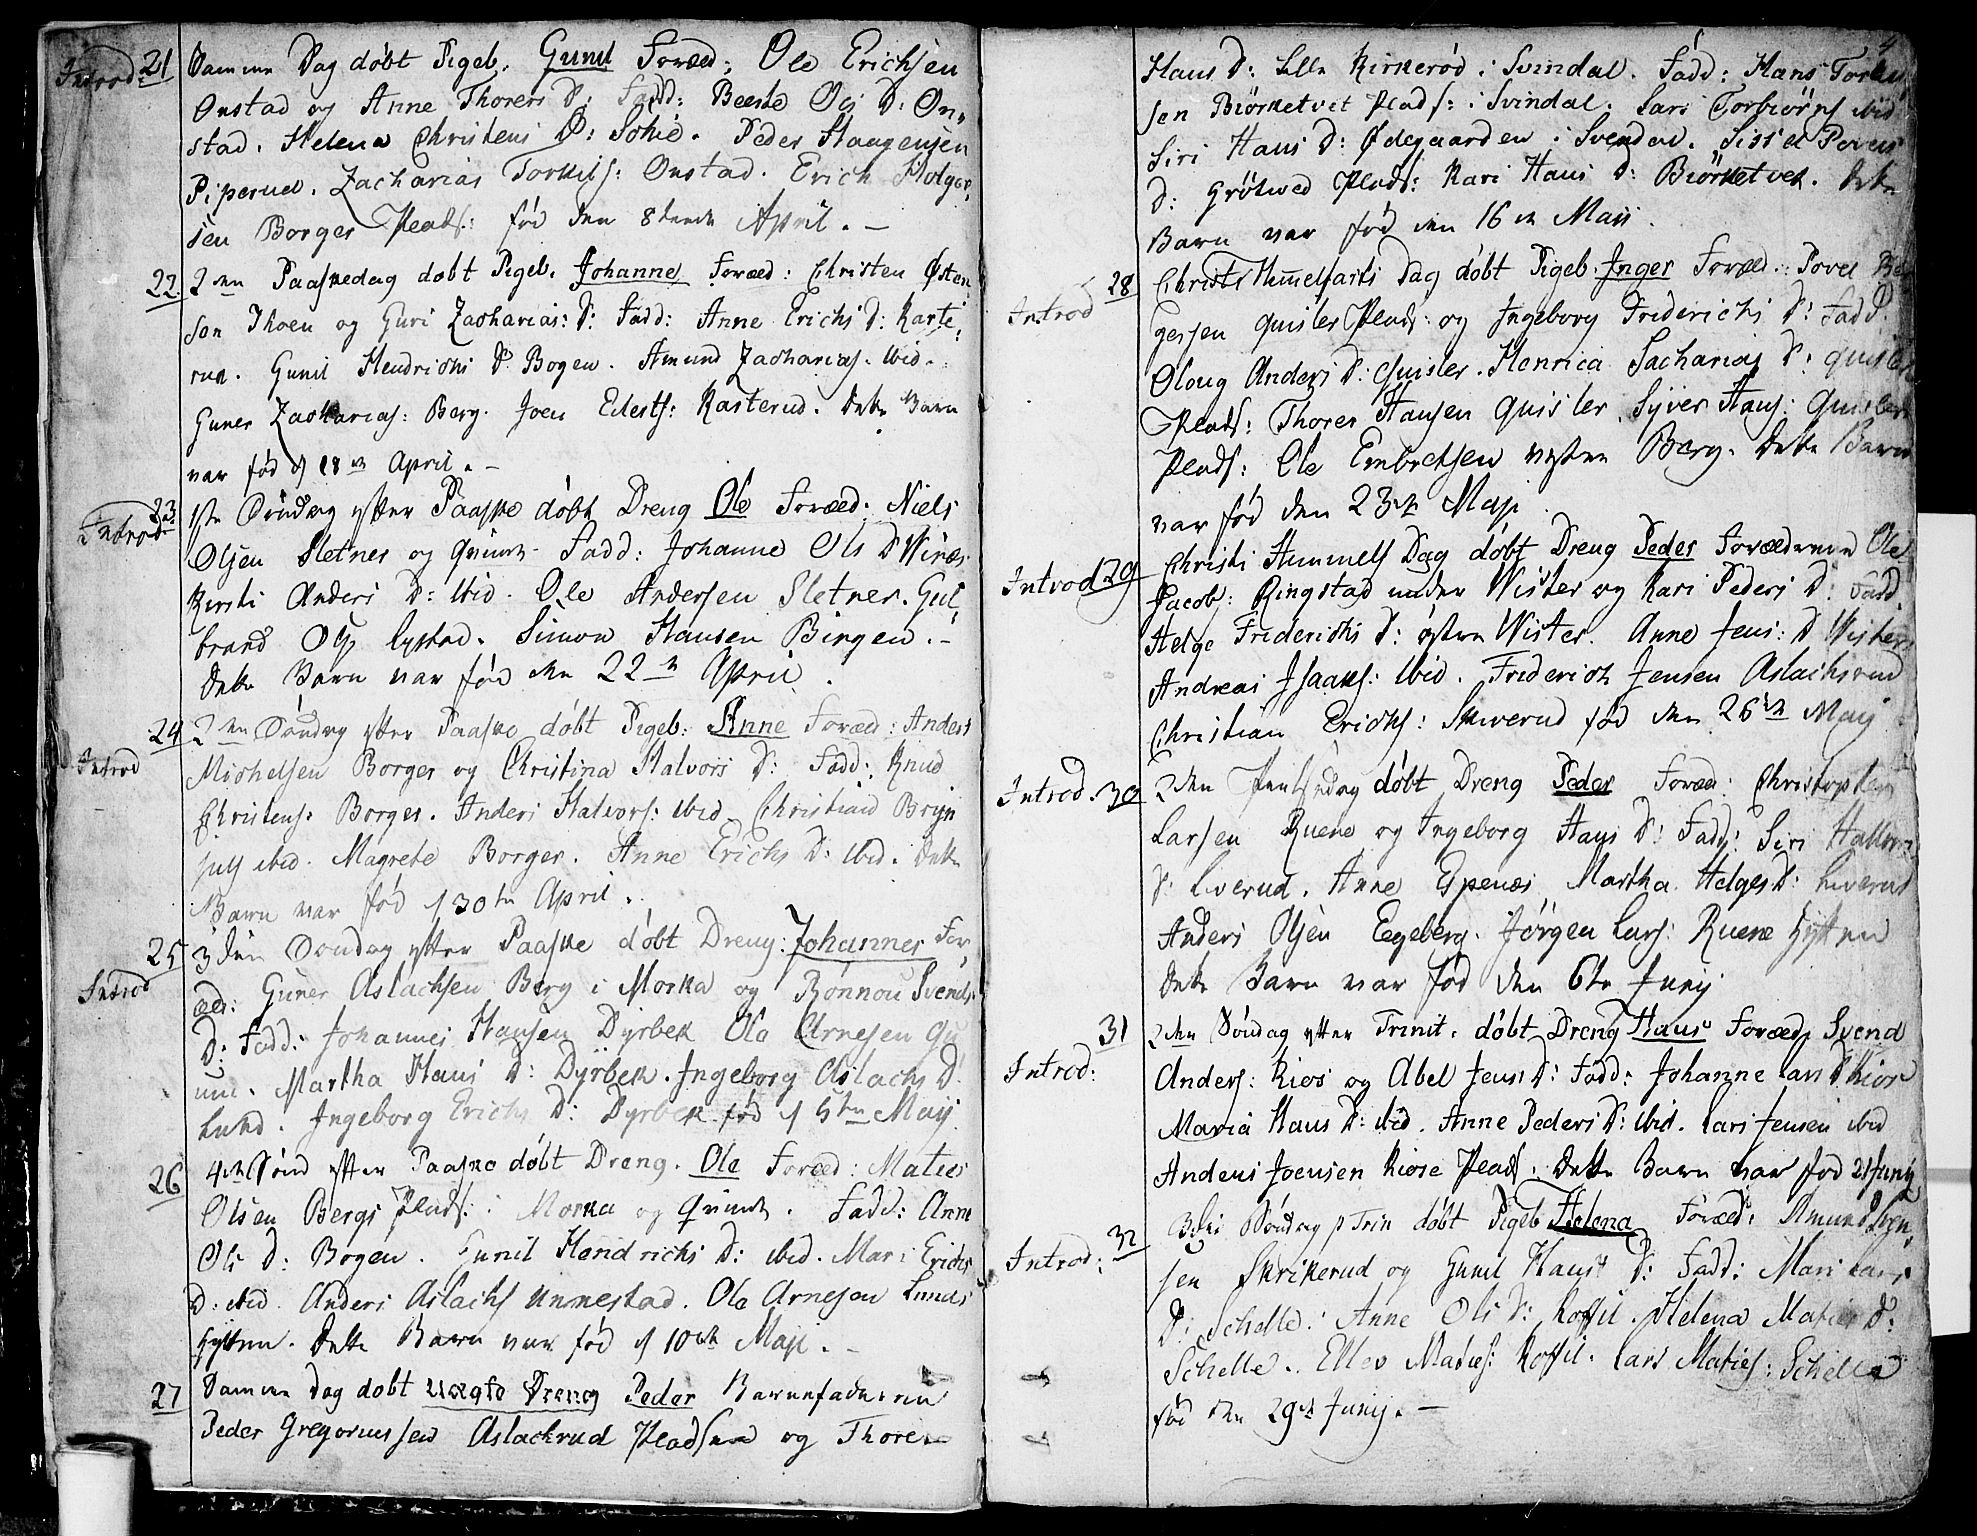 Introd. 21 Samme Dag døbt Pigeb. Gunil Foræld: Ole Erichsen
Onstad og Anne Thorers D: Fadd: Beeate Ols D: On-
stad. Helena Christens D: Peder Haagensen
Piperud. Zacharias Torkils: Onstad. Erich Holger-
sen Borger Plads: fød den 8tende April. —
22 2den Paaskedag døbt Pigeb. Johanne Foræld: Christen Østen-
sen Thoen og Guri Zacharias: D: Fadd: Anne Erichs D: Karte-
rud. Gunil Hendrichs D: Bogen. Amund Zacharias: ibid.
Guner Zacharias: Berg. Joen Edests: Kasterud. dette Barn
var fød d 18de April. —
Introd. 23 1ste Søndag efter Paaske døbt Dreng Ole Foræld: Niels
Olsen Sletner og Qvinde. Fadd: Johanne Ols D
Kirsti Anders D: ibid. Ole Andersen Sletner. Gul-
brand Ols Lystad. Simon Hansen Bingen. —
dette Barn var fød den 22de April.
Introd 24 2den Søndag efter Paaske døbt Pigeb: Anne Foræld: Anders
Michelsen Borger og Christina Halvors D: Fadd: Knud
Christens: Borger. Anders Halvors: ibid. Christian Bryn
juls ibid. Magrete Borger. Anne Erichs D: ibid. dette
Barn var fød d 30te April.
Introd 25 3den Søndag efter Paaske døbt Dreng: Johannes For-
æld: Guner Aslachsen Berg i Morka og Rønnou Svends
D: Fadd: Johannes Hansen Dyrbek Ole Arnesen
Martha Hans D: Dyrbek. Ingeborg Aslachs D
Lund. Ingeborg Erichs D: Dyrbek fød d 5te Maij
26 4de Sønd efter Paaske døbt Dreng. Ole Foræld: Maties
Olsen Bergs Plads: i Morka og Qvinde. Fadd: Anne
Ols D: Bogen. Gunil Hendrichs D: ibid. Mari Erichs
D: ibid. Anders Aslachs Unnestad. Ole Arnesen Lunds
hytten. dette Barn var fød d 10de Maji. —
27 Samme dag døbt uægte Dreng Peder Barnefaderen
Peder Gregoriussen Aslackrud Pladsen og Thore
4
Hans D: Lille Kirkerød i Svindal. Fadd: Hans Torkel
sen Biørketvet Plads: i Svindal. Lars Torbiørns ibid
Siri Hans D: Ødegaarden i Svendal. Sissel Povels
D: Grøtved Plads: Kari Hans D: Biørketvet. dette
Barn var fød den 16de Maii.
Introd 28 Christi Himmelfarts Dag døbt Pigeb. Inger Foræld: Povel Bør
gersen Quisler Plads: og Ingeborg Friderichs D: Fadd:
Oloug Anders D: Quisler. Henrica Sacharias D: Quisler
Plads: Thorer Hansen Quisler. Syver Hans: Quisler
Plads: Ole Embretsen vestre Berg. dette Barn
var fød den 23de Maji
Introd 29 Christi Himmels Dag døbt Dreng Peder Forældrene Ole
Jacobs: Ringstad under Wister og Kari Peders D: Fadd.
Helge Friderichs D: østre Wister. Anne Jens: D Wister
Andreas Isaaks: ibid. Friderich Jensen Aslachsrud
Christian Erichs: Skiverud fød den 26de Maij
Introd. 30 2den Pintsedag døbt Dreng Peder Foræld: Christopher
Larsen Ruene og Ingeborg Hans D: Fadd: Siri Halvors
D: Liverud. Anne Espenæs Martha Helges D: Liverud
Anders Olsen Eegeberg. Jørgen Lars: Ruene hytten
dette Barn var fød den 6te Junij
Introd: 31 2den Søndag efter Trinit: døbt Dreng Hans Foræld: Svend
Anders: Kios og Abel Jens D: Fadd: Johanne Lars D Kios
Maria Hans D: ibid. Anne Peders D: ibid. Lars Jensen ibid
Anders Joensen Kiose Plads. dette Barn var fød 21 Junij
Introd: 32 3die Søndag p Trin døbt Pigeb Helena Foræld: Amund Sven-
sen Skrikerud og Gunil Hans D: Fadd: Mari Lars
D: Schelle. Anne Ols D: Koffil. Helena Maties D:
Schelle. Ellev Maties: Koffil. Lars Maties: Schelle
fød den 29de Junij. —